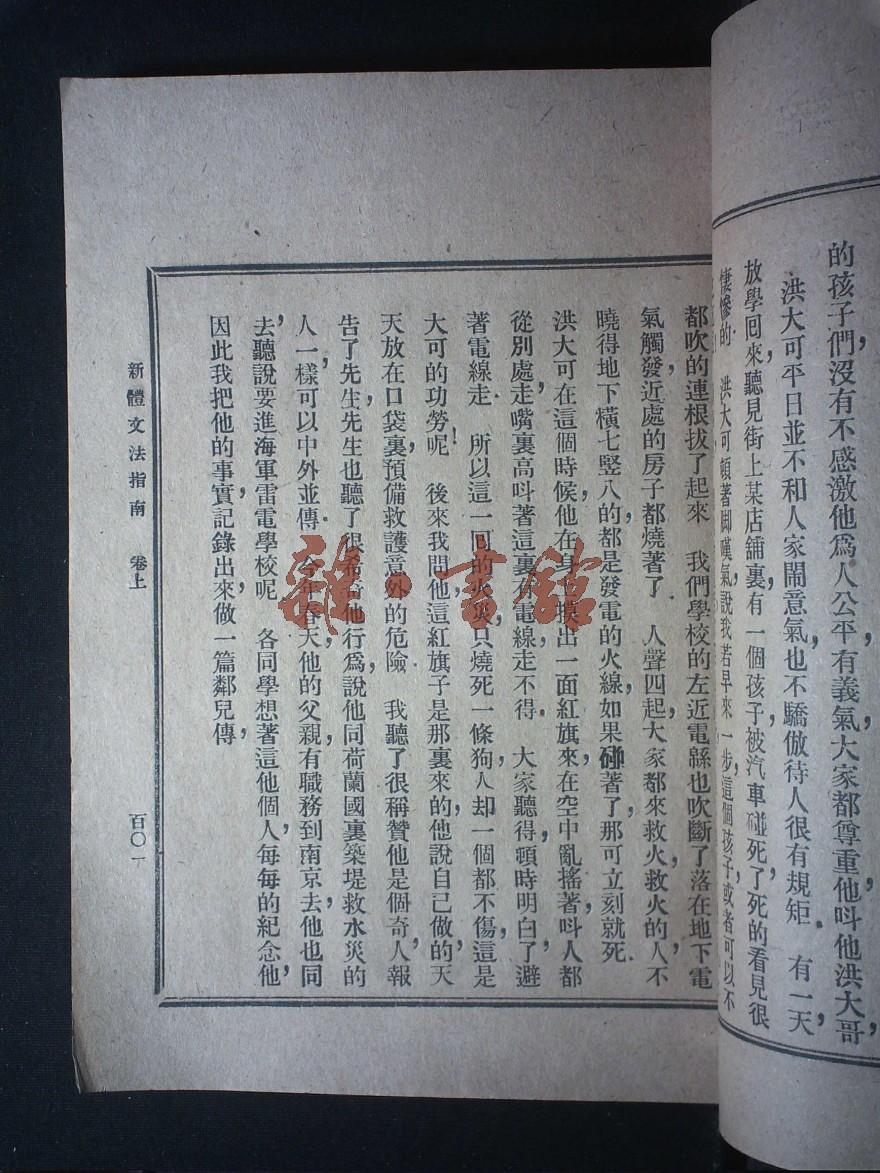 的孩子們，沒有不感激他爲人公平，有義氣，大家都尊重他，呌他洪大哥，
洪大可平日並不和人家鬧意氣，也不驕傲，待人很有規矩． 有一天，
放學囘來，聽見街上某店舖裏，有一個孩子，被汽車碰死了，死的看見很
悽慘的． 洪大可頓著脚嘆氣說，我若早來一步，這個孩子，或者可以不
都吹的連根拔了起來． 我們學校的左近，電綫也吹斷了，落在地下，電
氣觸發，近處的房子都燒著了． 人聲四起，大家都來救火，救火的人，不
曉得地下橫七竪八的，都是發電的火線，如果碰著了，那可立刻就死．
洪大可在這個時候，他在身上摸出一面紅旗來，在空中亂搖著，呌人都
從別處走，嘴裏高呌著，這裏有電線，走不得． 大家聽得，頓時明白了，避
著電線走． 所以這一回的火災，只燒死一條狗，人却一個都不傷，這是
大可的功勞呢！ 後來我問他，這紅旗子是那裏來的，他說自己做的，天
天放在口袋裏，預備救護意外的危險． 我聽了很稱贊他是個奇人，報
告了先生，先生也聽了很希奇他行爲，說他同荷蘭國裏築堤救水災的
人一樣，可以中外並傳． 今年春天，他的父親有職務到南京去，他也同
去，聽說要進海軍雷電學校呢． 各同學想著這他個人，每每的紀念他，
因此我把他的事實，記錄出來，做一篇鄰兒傳，
新體文法指南 卷上
百〇一
雜·書館